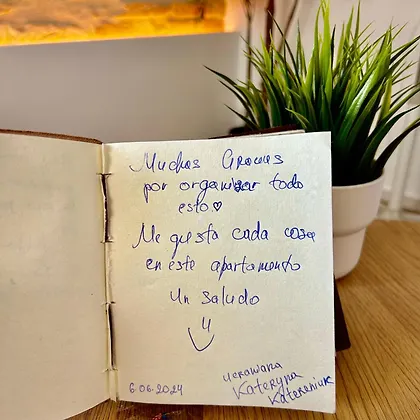 Muchas Gracias
por organizar todo
esto ♡
Me gusta cada cosa
en este apartamento
Un saludo
6.06.2024
Kateryna
Katereniuk